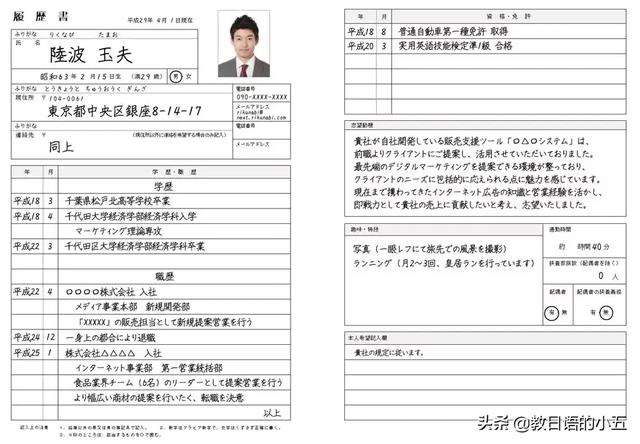 履歴書
平成29年 4月 1日現在
ふりがな りくなび たまお
氏名
陸波 玉夫
昭和63年 2月15日生 (満29歳) 男・女
ふりがな とうきょうと ちゅうおうく ぎんざ
現住所 〒104-0061
東京都中央区銀座8-14-17
電話番号
090-XXXX-XXXX
メールアドレス
rikunabi@
next.rikunabi.com
ふりがな
連絡先 (現住所以外に連絡を希望する場合のみ記入)
同上
電話番号
メールアドレス
年 月 学歴・職歴
学歴
平成18 3 千葉県松戸北高等学校卒業
平成18 4 千代田大学経済学部経済学科入学
マーケティング理論専攻
平成22 3 千代田区大学経済学部経済学科卒業
職歴
平成22 4 〇〇〇〇株式会社 入社
メディア事業本部 新規開発部
「XXXXX」の販売担当として新規提案営業を行う
平成24 12 一身上の都合により退職
平成25 1 株式会社△△△△ 入社
インターネット事業部 第一営業統括部
食品業界チーム(6名)のリーダーとして提案営業を行う
より幅広い商材の提案を行いたく、転職を決意
以上
年 月 資格・免許
平成18 8 普通自動車第一種免許 取得
平成20 3 実用英語技能検定準1級 合格
志望動機
貴社が自社開発している販売支援ツール「〇△〇システム」は、
前職よりクライアントにご提案し、活用させていただいておりました。
最先端のデジタルマーケティングを提案できる環境が整っており、
クライアントのニーズに包括的に応えられる点に魅力を感じています。
現在まで携わってきたインターネット広告の知識と営業経験を活かし、
即戦力として貴社の売上に貢献したいと考え、志望いたしました。
趣味・特技
写真(一眼レフにて旅先での風景を撮影)
ランニング(月2〜3回、皇居ランを行っています)
通勤時間
約 時間40分
扶養家族数(配偶者を除く)
0 人
配偶者
有・無
配偶者の扶養義務
有・無
本人希望記入欄
貴社の規定に従います。
头条 @教日语的小五